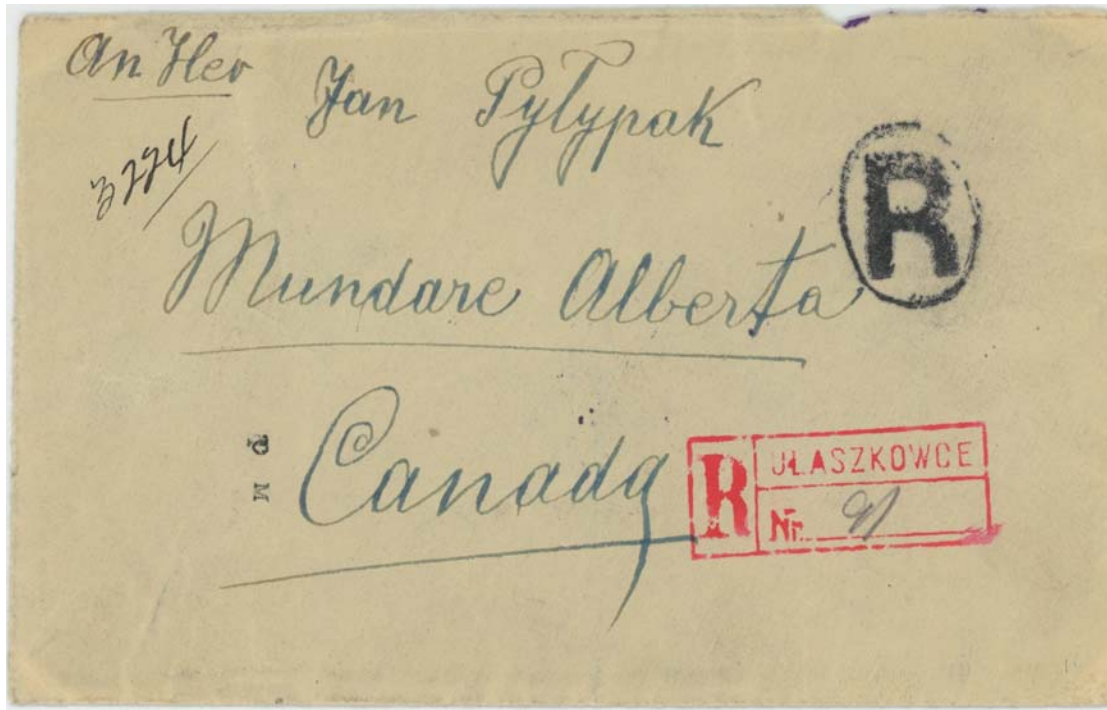 An Her
Jan Pylypak
3224
Mundare Alberta
R
Canada
R UŁASZKOWCE
Nr.